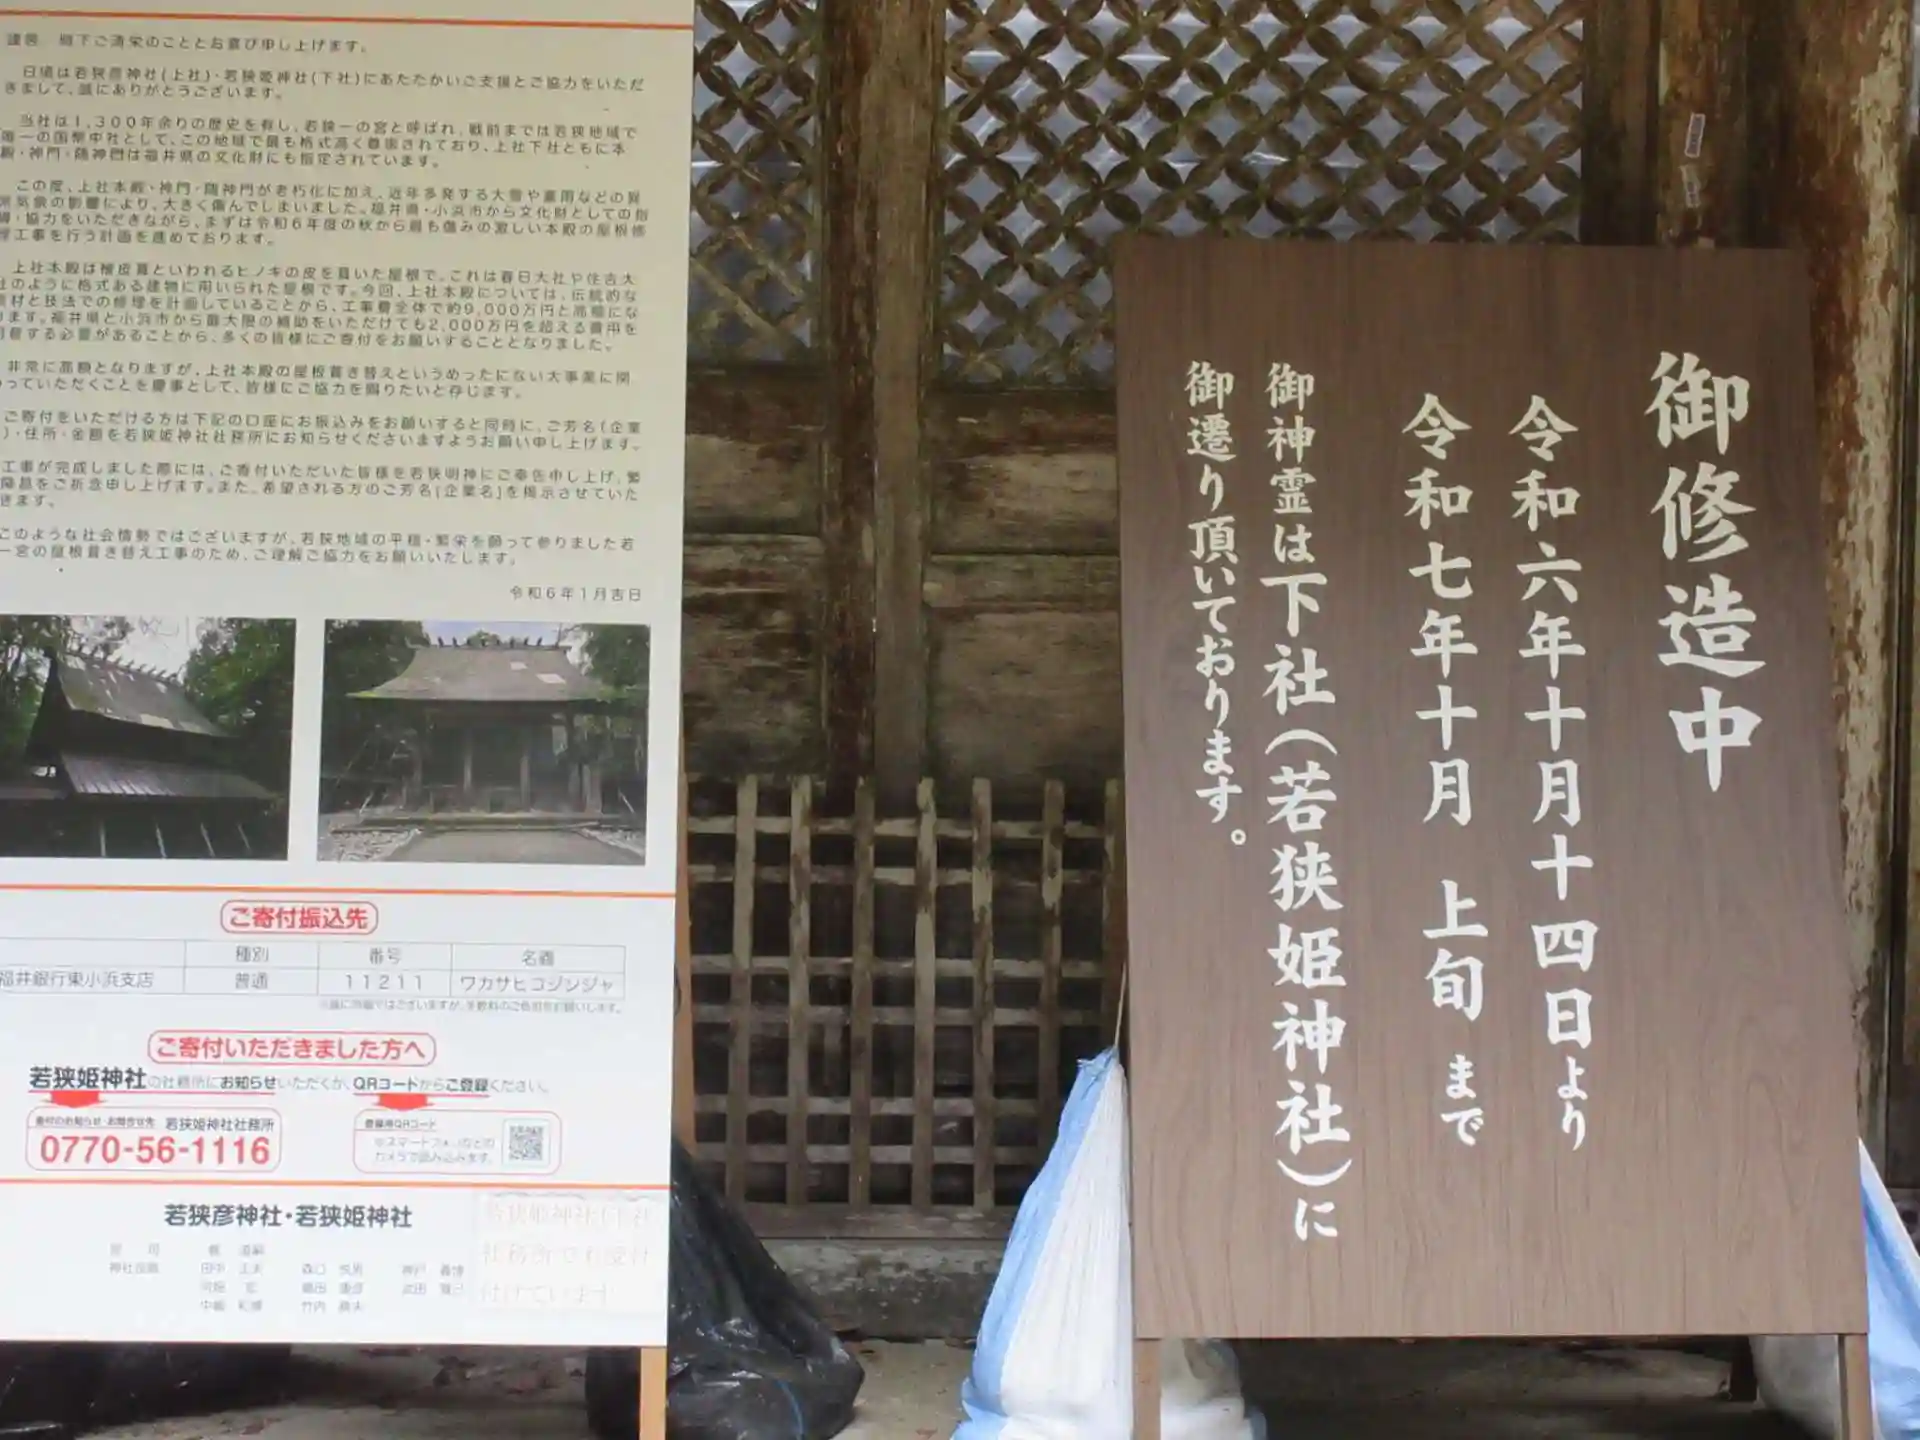 謹啓 時下ご清栄のこととお喜び申し上げます。
日頃は若狭彦神社(上社)・若狭姫神社(下社)にあたたかいご支援とご協力をいただ
きまして、誠にありがとうございます。
当社は1,300年余りの歴史を有し、若狭一の宮と呼ばれ、戦前までは若狭地域で
唯一の国幣中社として、この地域で最も格式高く尊崇されており、上社下社ともに本
殿・神門・随神門は福井県の文化財にも指定されています。
この度、上社本殿・神門・随神門が老朽化に加え、近年多発する大雪や豪雨などの異
常気象の影響により、大きく傷んでしまいました。福井県・小浜市から文化財としての指
導・協力をいただきながら、まずは令和6年度の秋から最も傷みの激しい本殿の屋根修
理工事を行う計画を進めております。
上社本殿は檜皮葺といわれるヒノキの皮を葺いた屋根で、これは春日大社や住吉大
社のように格式ある建物に用いられた屋根です。今回、上社本殿については、伝統的な
素材と技法での修理を計画していることから、工事費全体で約9,000万円と高額にな
ります。福井県と小浜市から最大限の補助をいただけても2,000万円を超える費用を
用意する必要があることから、多くの皆様にご寄付をお願いすることとなりました。
非常に高額となりますが、上社本殿の屋根葺き替えというめったにない大事業に関
わっていただくことを慶事として、皆様にご協力を賜りたいと存じます。
ご寄付をいただける方は下記の口座にお振込みをお願いすると同時に、ご芳名(企業
)・住所・金額を若狭姫神社社務所にお知らせくださいますようお願い申し上げます。
工事が完成しました際には、ご寄付いただいた皆様を若狭明神にご奉告申し上げ、繁
隆昌をご祈念申し上げます。また、希望される方のご芳名[企業名]を掲示させていた
きます。
このような社会情勢ではございますが、若狭地域の平穏・繁栄を願って参りました若
一宮の屋根葺き替え工事のため、ご理解ご協力をお願いいたします。
令和6年1月吉日
ご寄付振込先
種別 番号 名義
福井銀行東小浜支店 普通 11211 ワカサヒコジンジャ
ご寄付いただきました方へ
若狭姫神社の社務所にお知らせいただくか、QRコードからご登録ください。
寄付のお知らせ・お問合せ先 若狭姫神社社務所
0770-56-1116
登録用QRコード
※スマートフォンなどの
カメラで読み込みます。
若狭彦神社・若狭姫神社
若狭姫神社(下社)
社務所でも受付
付けています
御修造中
令和六年十月十四日より
令和七年十月 上旬 まで
御神霊は下社(若狭姫神社)に
御遷り頂いております。